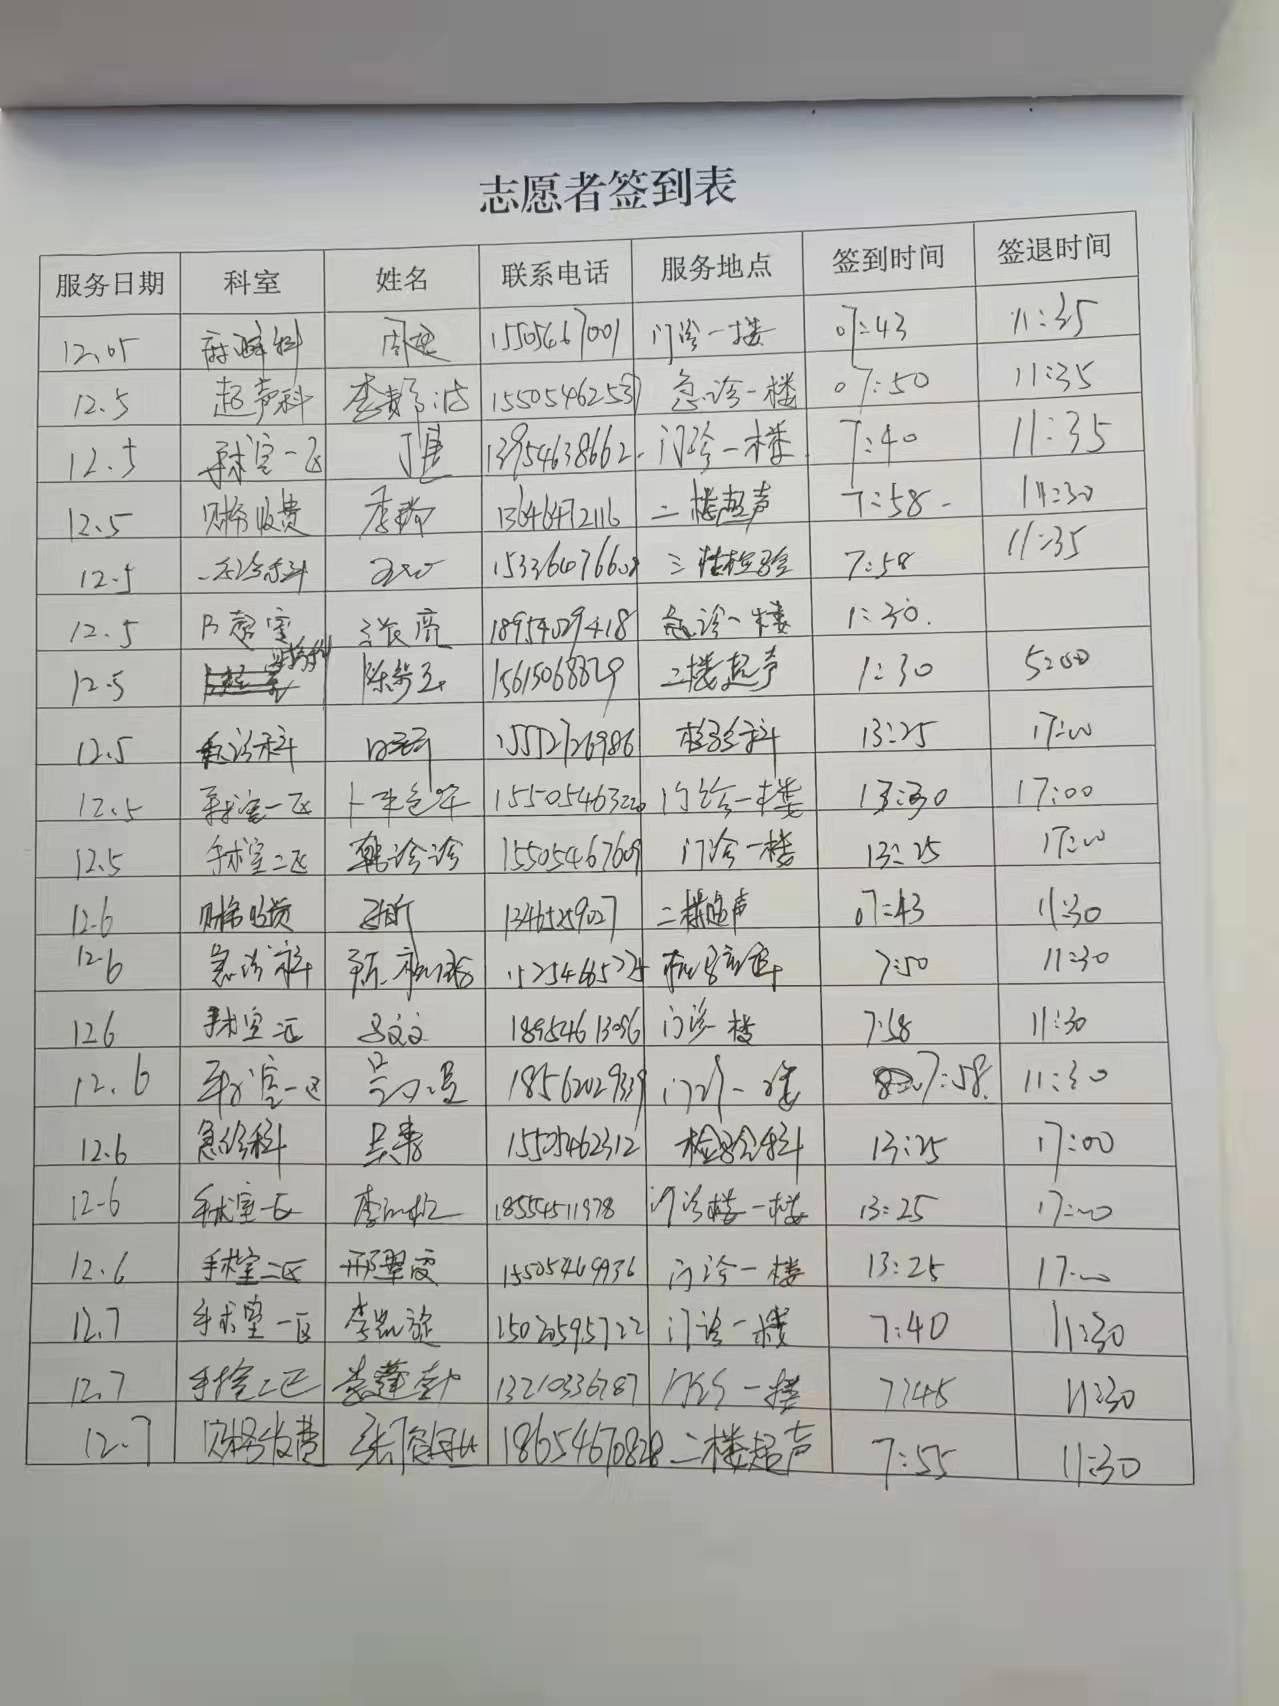 志愿者签到表
服务日期 科室 姓名 联系电话 服务地点 签到时间 签退时间
12.05 麻醉科 15505467001 门诊一楼 07:43 11:35
12.5 超声科 1550546253 急诊一楼 07:50 11:35
12.5 手术室一区 13954638662 门诊一楼 7:40 11:35
12.5 财务收费 13646472116 二楼超声 7:58 11:30
12.5 三楼检验 7:58 11:35
12.5 B超室 张亮 18954029418 急诊一楼 1:30
12.5 15615068829 二楼超声 1:30 5:00
12.5 急诊科 15552726986 检验科 13:25 17:00
12.5 手术室一区 15505463220 门诊一楼 13:30 17:00
12.5 手术室二区 韩诊诊 15505467609 门诊一楼 13:25 17:00
12.6 财务收费 13465259027 二楼超声 07:43 11:30
12.6 急诊科 7:50 11:30
12.6 手术室二区 18954613096 门诊一楼 7:58 11:30
12.6 手术室一区 18562029339 门诊一楼 7:58 11:30
12.6 急诊科 15505462312 检验科 13:25 17:00
12.6 手术室一区 18554511978 门诊楼一楼 13:25 17:00
12.6 手术室二区 邢翠霞 15505469936 门诊一楼 13:25 17:00
12.7 手术室一区 李凯旋 15020595722 门诊一楼 7:40 11:30
12.7 手术室二区 13210336787 门诊一楼 7:45 11:30
12.7 财务收费 18654670828 二楼超声 7:55 11:30